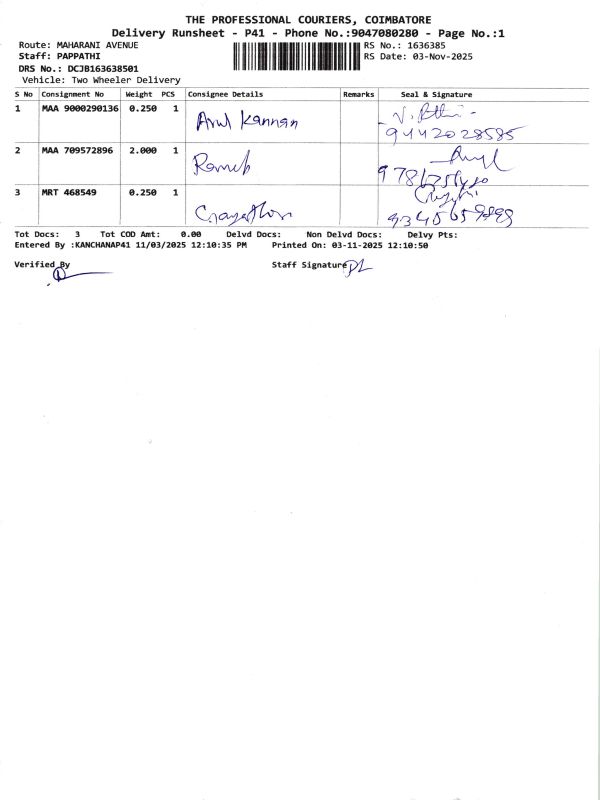 THE PROFESSIONAL COURIERS, COIMBATORE
Delivery Runsheet - P41 - Phone No.:9047080280 - Page No.:1
Route: MAHARANI AVENUE
RS No.: 1636385
Staff: PAPPATHI
RS Date: 03-Nov-2025
DRS No.: DCJB163638501
Vehicle: Two Wheeler Delivery
S No Consignment No Weight PCS Consignee Details Remarks Seal & Signature
1 MAA 9000290136 0.250 1 Arul Kannan
9442028585
2 MAA 709572896 2.000 1 Ramesh
3 MRT 468549 0.250 1
Tot Docs: 3 Tot COD Amt: 0.00 Delvd Docs: Non Delvd Docs: Delvy Pts:
Entered By :KANCHANAP41 11/03/2025 12:10:35 PM Printed On: 03-11-2025 12:10:50
Verified By Staff Signature